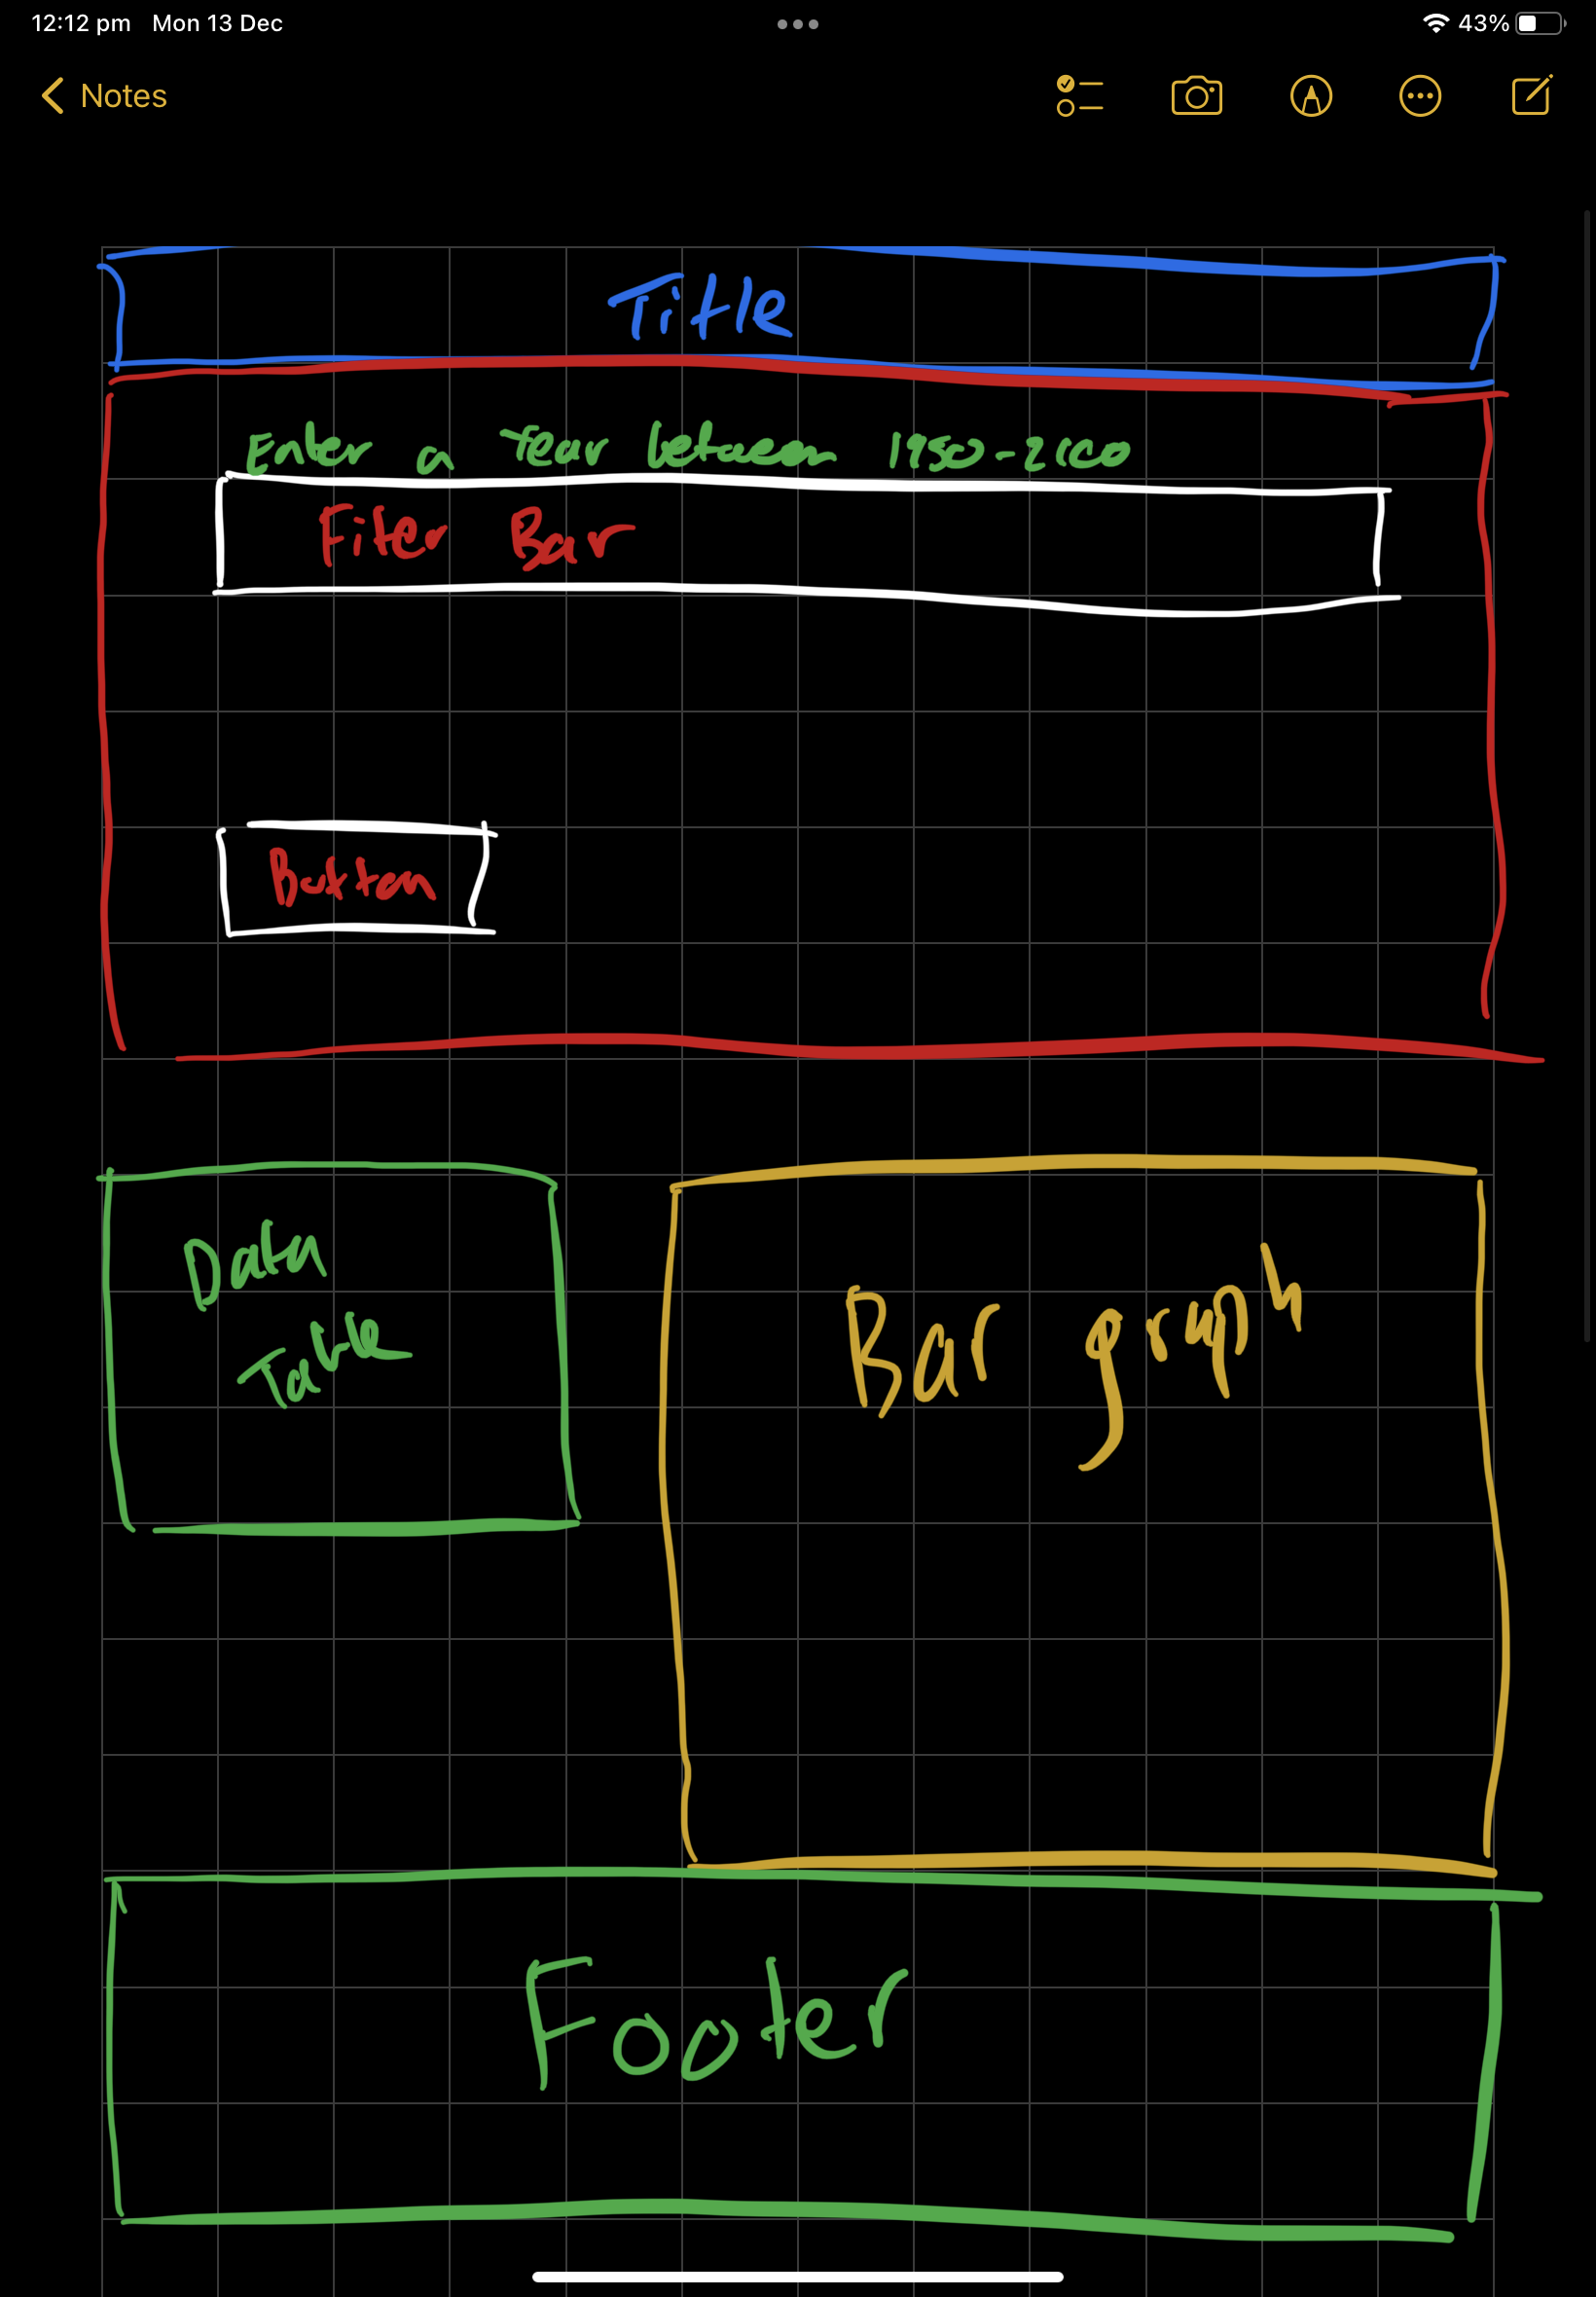 12:12 pm Mon 13 Dec
43%
Notes
Title
Enter a Year between 1950-2100
Filter Bar
Button
Data
Table
Bar graph
Footer